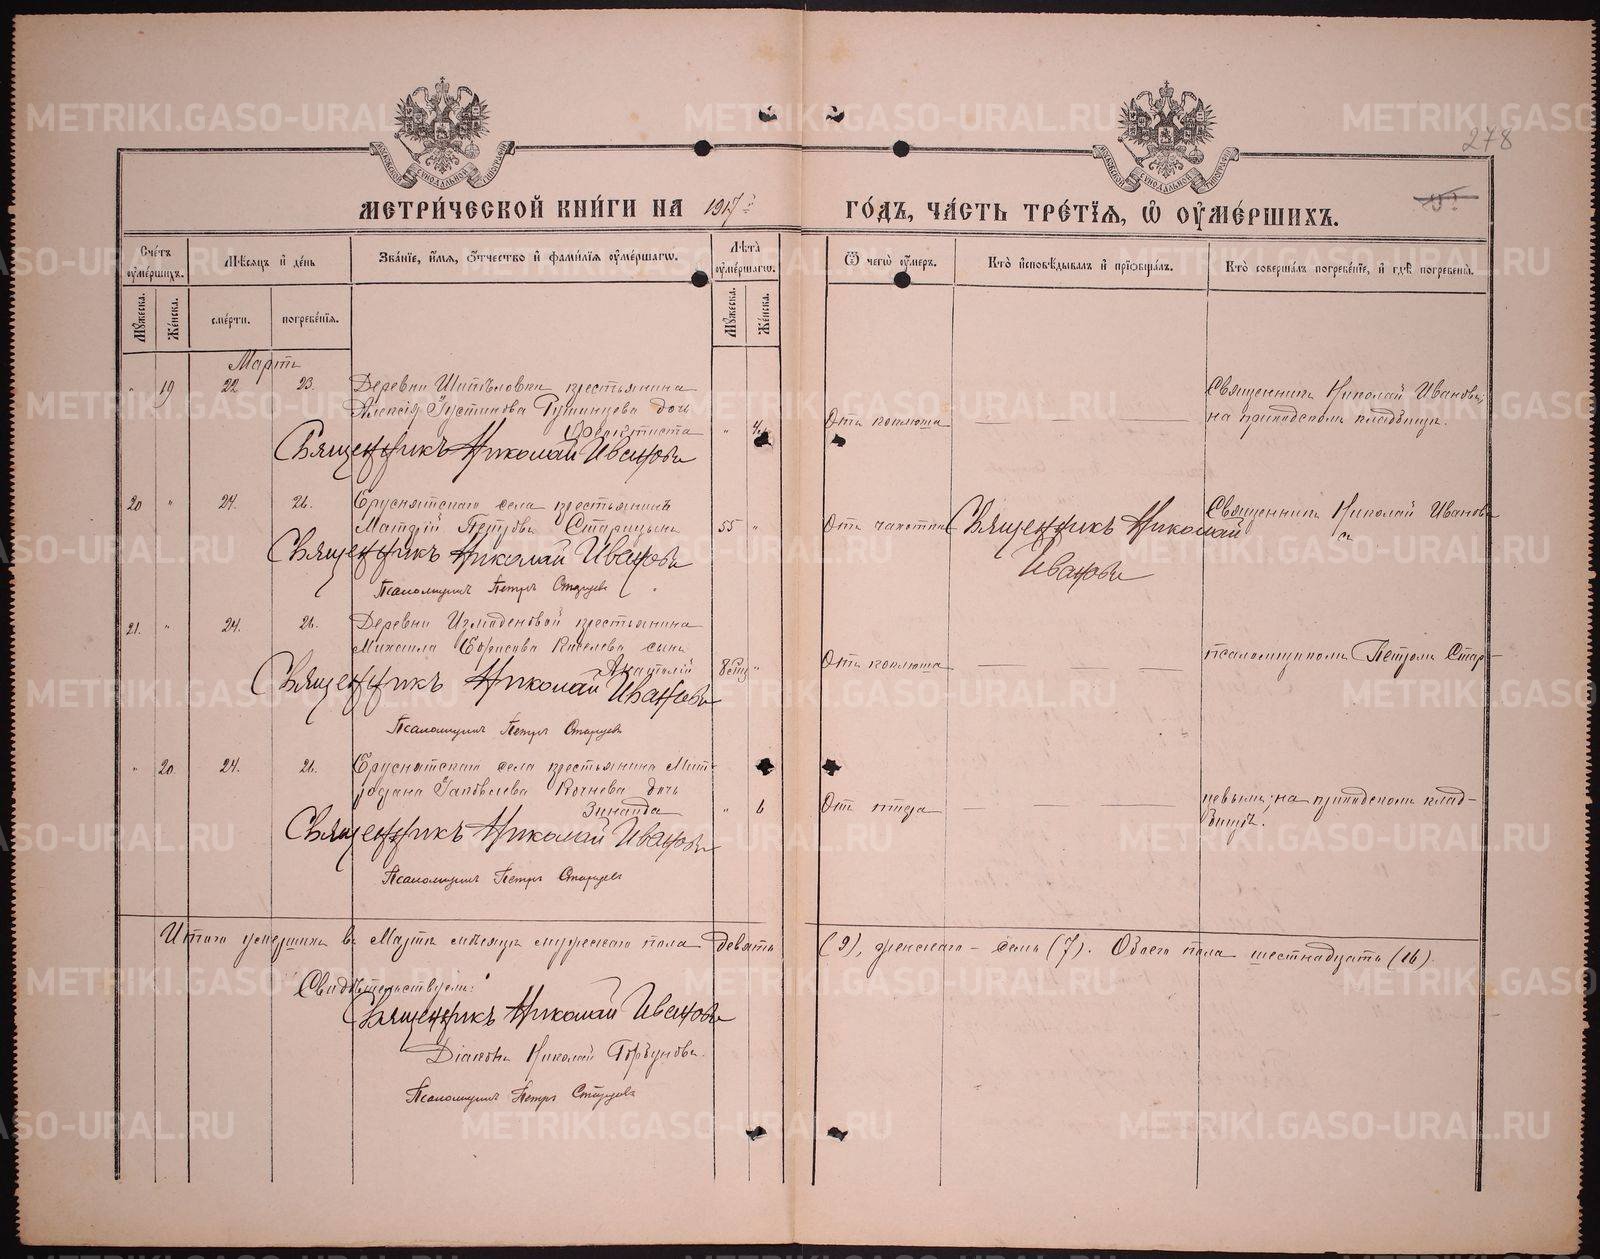 278
МЕТРИЧЕСКОЙ КНИГИ НА 1917 ГОДЪ, ЧАСТЬ ТРЕТІЯ, Ѿ ОУМЕРШИХЪ.
Счетъ оумершихъ.
Мѣсяцъ и день
Званіе, имя, отчество и фамилія оумершагѡ.
Лѣта оумершагѡ.
Ѿ чегѡ оумеръ.
Кто исповѣдывалъ и пріобщалъ.
Кто совершалъ погребеніе, и гдѣ погребены.
Мужеска. Женска. смерти. погребенія. Мужеска. Женска.
Мартъ
" 19 22 23. Деревни крестьянина
Алексія Іустинова Румянцева дочь
" 4 Отъ коклюша — —
Священникъ Николай Ивановъ,
на приходскомъ кладбищѣ.
Священникъ Николай Ивановъ
20 " 24. 26. села крестьянинъ
Петровъ Старицынъ
55 " Отъ чахотки
Священникъ Николай Ивановъ
Священникъ Николай Ивановъ
съ
Священникъ Николай Ивановъ
Псаломщикъ Петръ Старцевъ
21. " 24. 26. Деревни Измоденовой крестьянина
Михаила Борисова Киселева сынъ
Анатолій
" Отъ коклюша — —
псаломщикомъ Петромъ Стар-
Священникъ Николай Ивановъ
Псаломщикъ Петръ Старцевъ
" 20 24. 26. села крестьянина Мит-
рофана Яковлева Кочнева дочь
Зинаида
" 6 Отъ — —
цевымъ; на приходскомъ клад-
бищѣ.
Священникъ Николай Ивановъ
Псаломщикъ Петръ Старцевъ
Итого умершихъ въ Мартѣ мѣсяцѣ мужескаго пола девять (9), женскаго — семь (7). Обоего пола шестнадцать (16).
Свидѣтельствуемъ:
Священникъ Николай Ивановъ
Діаконъ Николай Горбуновъ.
Псаломщикъ Петръ Старцевъ
METRIKI.GASO-URAL.RU